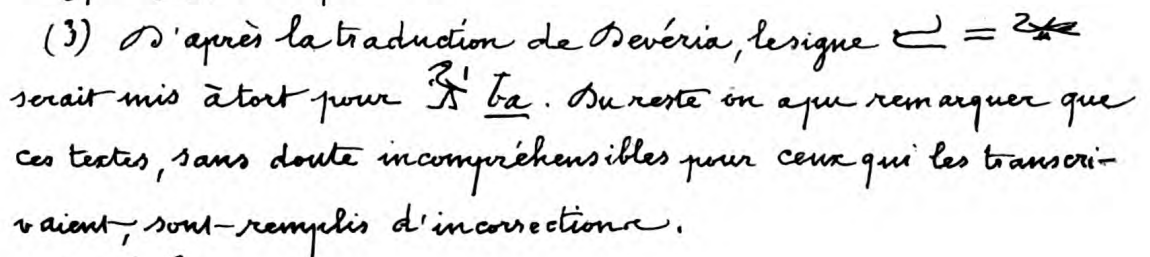 (3) D'après la traduction de Devéria, le signe =
serait mis à tort pour ba. Du reste on a pu remarquer que
ces textes, sans doute incompréhensibles pour ceux qui les transcri-
vaient, sont remplis d'incorrections.